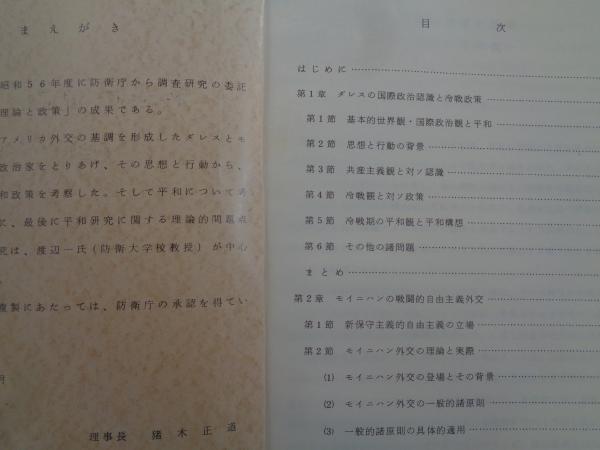 まえがき
昭和56年度に防衛庁から調査研究の委託
理論と政策」の成果である。
アメリカ外交の基調を形成したダレスとモ
政治家をとりあげ、その思想と行動から、
和政策を考察した。そして平和について考
に、最後に平和研究に関する理論的問題点
究は、渡辺一氏(防衛大学校教授)が中心
複製にあたっては、防衛庁の承認を得てい
月
理事長 猪木正道
目次
はじめに
第1章 ダレスの国際政治認識と冷戦政策
第1節 基本的世界観・国際政治観と平和
第2節 思想と行動の背景
第3節 共産主義観と対ソ認識
第4節 冷戦観と対ソ政策
第5節 冷戦期の平和観と平和構想
第6節 その他の諸問題
まとめ
第2章 モイニハンの戦闘的自由主義外交
第1節 新保守主義的自由主義の立場
第2節 モイニハン外交の理論と実際
(1) モイニハン外交の登場とその背景
(2) モイニハン外交の一般的諸原則
(3) 一般的諸原則の具体的適用